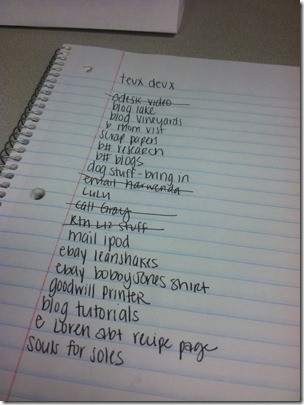 tevx devx
odesk video
blog lake
blog vineyards
b mom vist
scrap papers
b# research
b# blogs
dog stuff - bring in
email
LULU
call Gray
Rtn Liz stuff
mail ipod
ebay leanshakes
ebay bobby jones shirt
goodwill printer
blog tutorials
e Loren abt recipe page
souls for soles